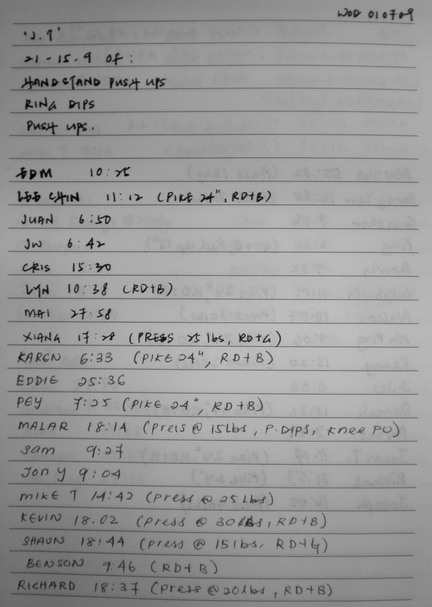 WOD 010709
'J.T'
21-15-9 OF:
HANDSTAND PUSH UPS
RING DIPS
PUSH UPS.
EDM 10:25
LEE CHIN 11:12 (PIKE 24", RD+B)
JUAN 6:50
JW 6:42
CRIS 15:30
LYN 10:38 (RD+B)
MAI 27:58
XIANG 17:28 (PRESS 25 lbs, RD+G)
KAREN 6:33 (PIKE 24", RD+B)
EDDIE 25:36
PEY 7:25 (PIKE 24", RD+B)
MALAR 18:14 (Press @ 15lbs, P.DIPS, Knee PU)
Sam 9:27
Jon Y 9:04
MIKE T 14:42 (Press @ 25lbs)
KEVIN 18.02 (press @ 30lbs, RD+B)
SHAUN 18:44 (press @ 15lbs, RD+G)
BENSON 9:46 (RD+B)
RICHARD 18:37 (press @20lbs, RD+B)